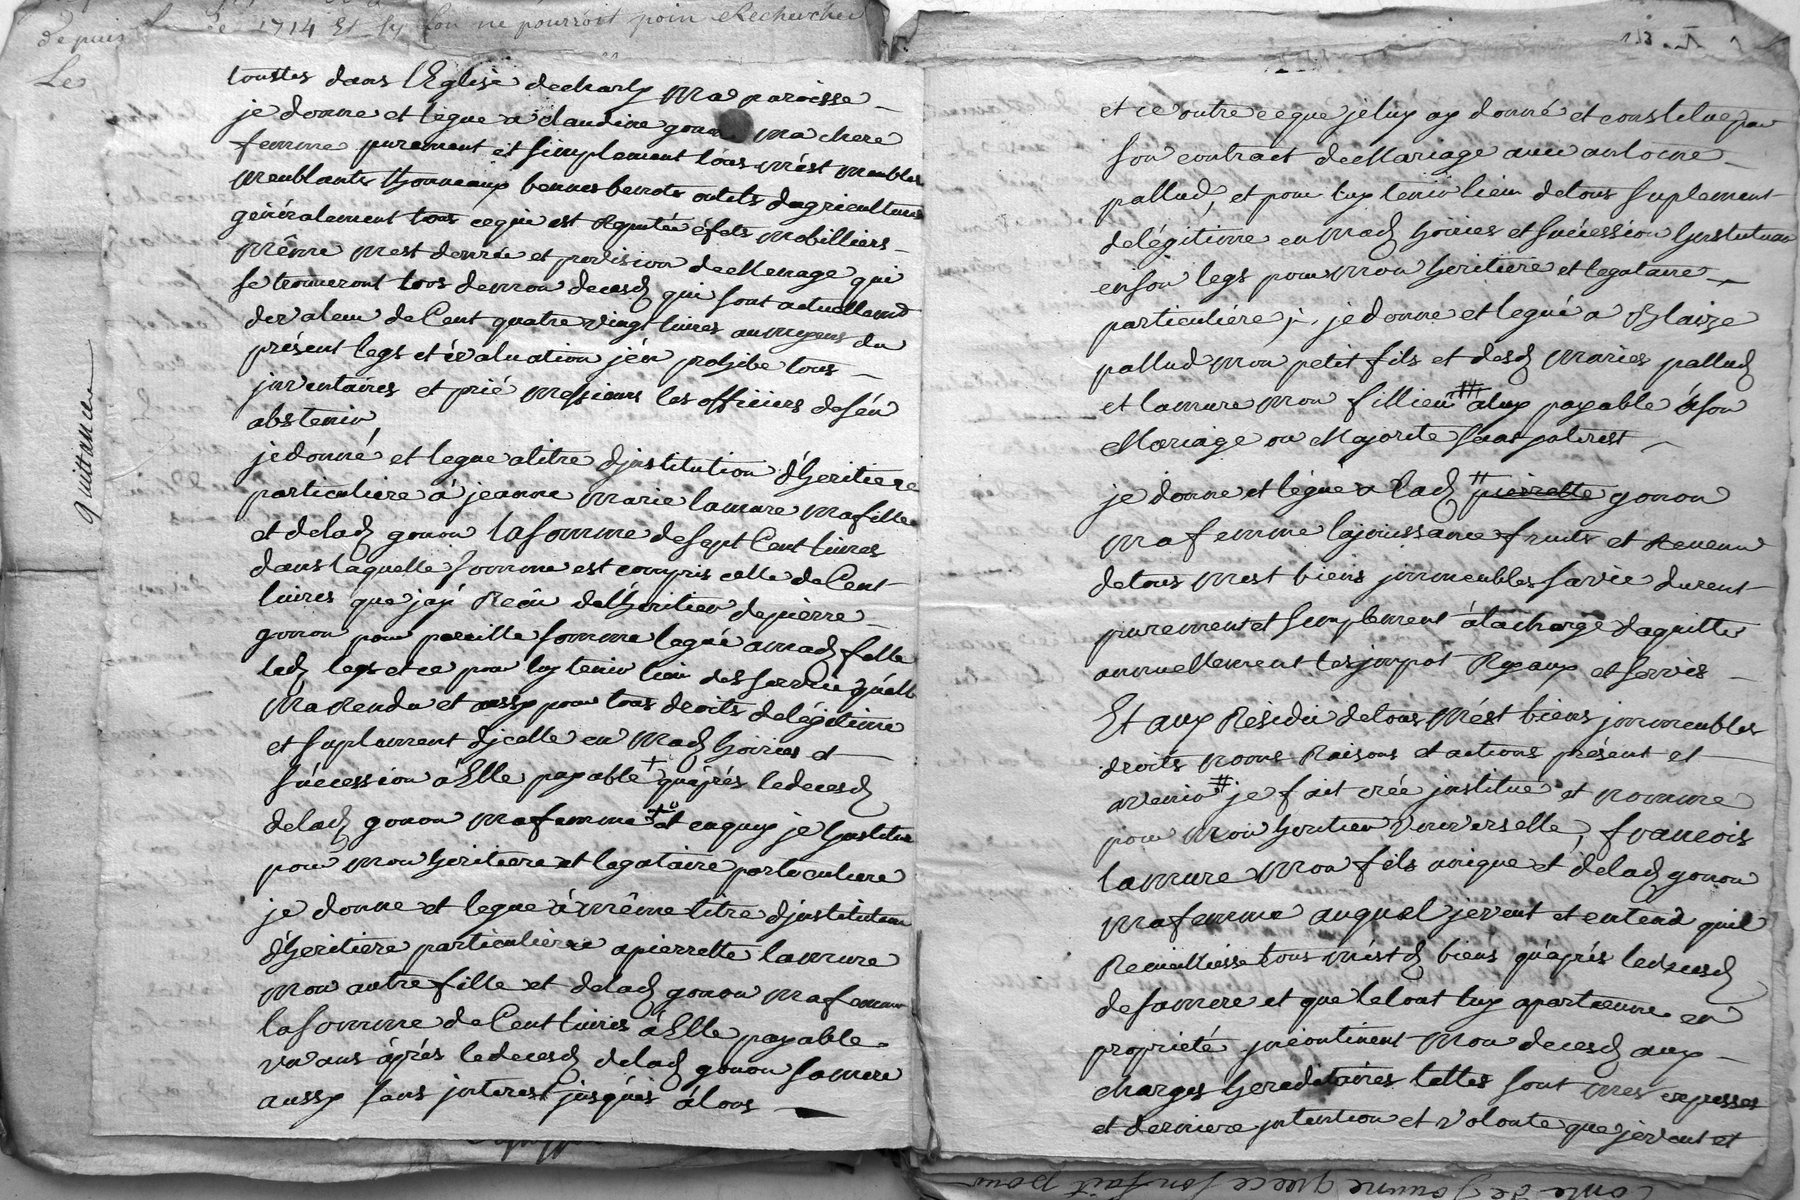 depuis Le de 1714 Et sy lon ne pourroit poin Rechercher
Le
quittance
touttes dans l'Eglise decharly ma paroisse
je donne et legue a claudine gonon ma chere
femme purement et simplement tous mést meubles
meublants thonneaux bennes benots outils dagriculture
généralement tous cequi est Reputée éfets mobilliers
même mest denrée et provision deMenage qui
se trouveront lors demon decesd qui sont actuellemt
devaleur deCent quatre vingt livres aumoyens du
présent legs et évaluation j'én prohibe tous
jnventaires et prié messieurs les officiers desén
abstenir,
jedonné et legue atitre djnstitution d'heritiere
particuliere á jeanne marie lamure mafille
et deladt gonon lasomme desept Cent livres
dans laquelle somme est compris celle deCent
livres que jay Recu del'heritier depierre
gonon pour pareille somme legué amadt fille
ledt legs et ce pour luy tenir lieu des service quélle
ma Rendu et aussy pour tous droits delégitime
et suplement djcelle en madt hoiries et
sucession á Elle payable + quáprés ledecesd
deladt gonon mafemme et enquoy je hinstitue
pour mon heritiere et legataire particuliere
je donne et legue á même titre djnstitution
d'heritiere particuliere apierrette lamure
mon autre fille et deladt gonon mafemme
lasomme deCent livres á Elle payable
un ans áprés ledecesd deladt gonon samere
aussy sans jnterest jusqués álors
et ce outre ceque jeluy ay donné et constitue par
son contract deMariage avec antoine
pallud, et pour luy tenir lieu detous suplement
delégitime en madt hoiries et sucession hinstituant
enson legs pour mon heritiere et legataire
particuliére ; je donne et legué a Blaize
pallud mon petit fils et desdt mariés pallud
et lamure mon fillieu # aluy payable á son
Mariage ou Majorite sans jnterest
je donne et légue a ladt # pierrette gonon
ma femme lajouissance fruits et Revenu
detous mest biens jmmeubles savie durent
purement et simplement álacharge daquitter
annuellement les jmpot Royaux et servis
Et aux Résidu detous mést biens jmmeubles
droits noms Raisons et actions présent et
avenir # je fait créé jnstitué et nomme
pour mon heritier universelle, francois
lamure mon fils unique et deladt gonon
mafemme auquel jeveut et entend quil
Recueilliesse tous méstd biens quáprés ledecesd
desamere et que letout luy apartienne en
propriété jncontinent mon decesd aux
charges hereditaires telles sont mes expresses
et derniere jntention et volonte que jeveut et